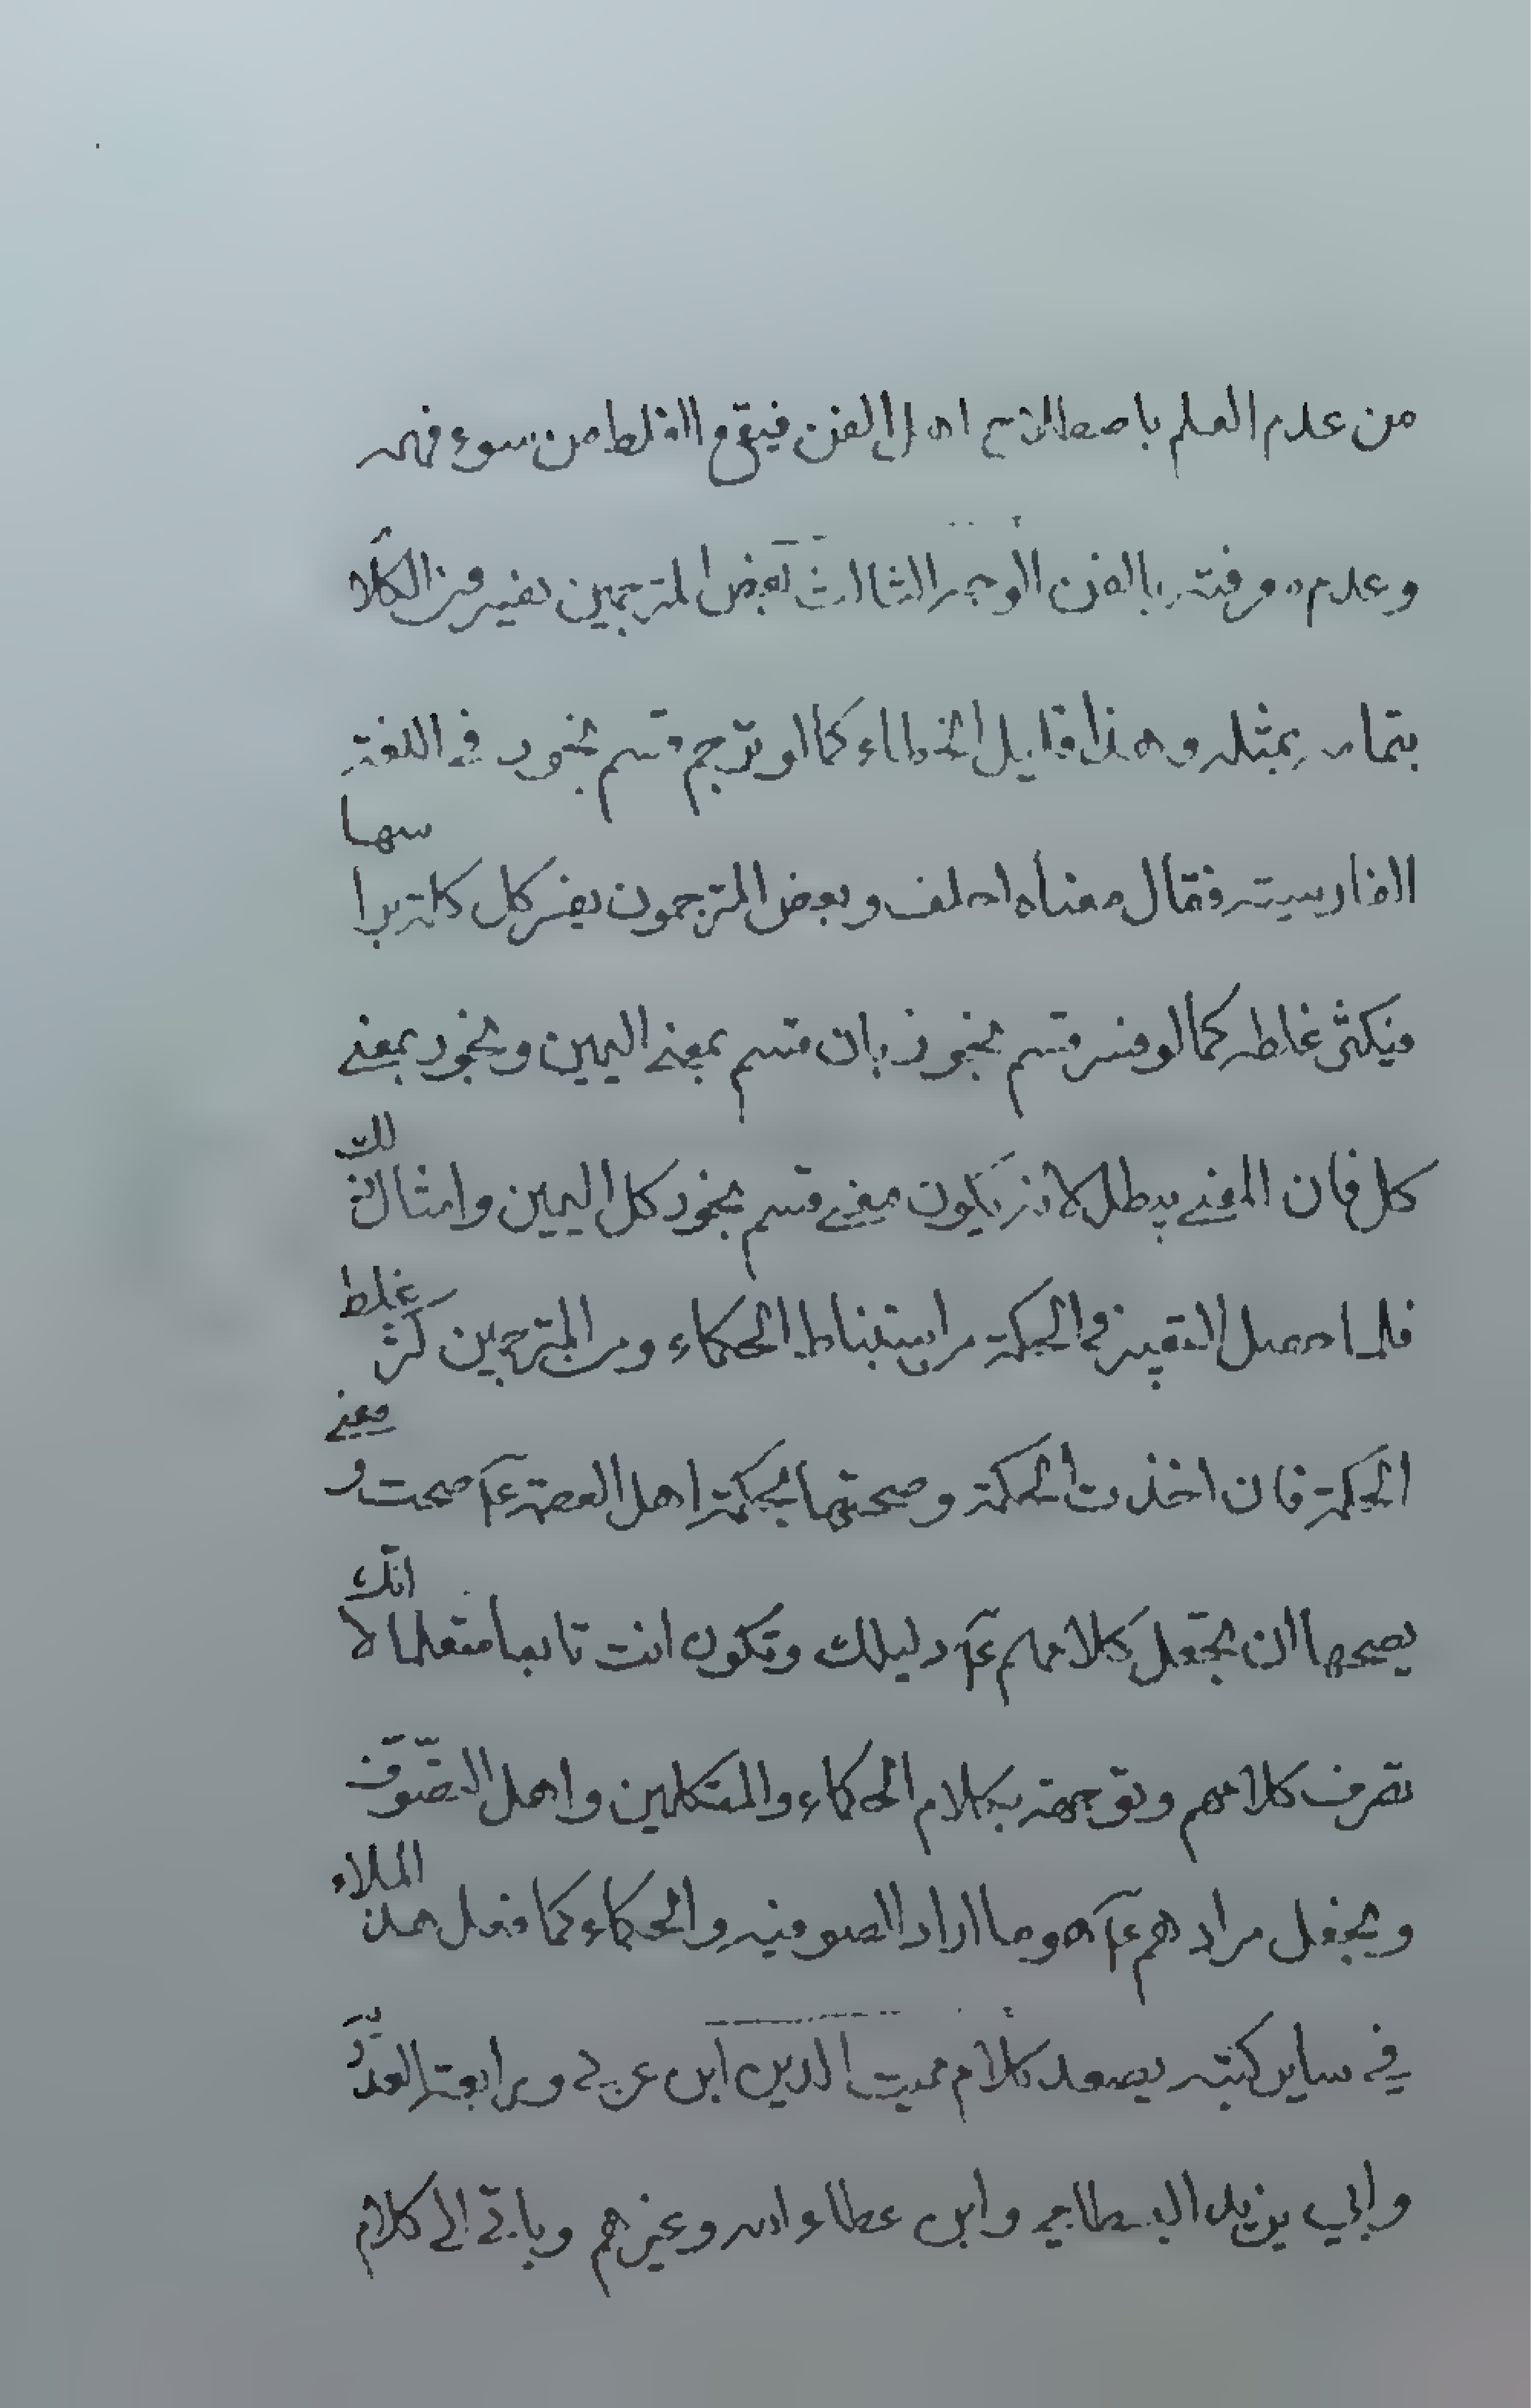 من عدم العلم باصطلاح اهل الفن فيقع الغلط من سوء فهمه
وعدم معرفته بالفن الوجه الثالث بعض المترجمين يفسر من الكلام
بتمامه بمثله وهذا قليل الخطاء كما لو ترجم قسم بخورد في اللغة
الفارسية فقال معناه احلف وبعض المترجمون يفسر كل كلمة براسها
فيكثر غلطه كما لو فسر قسم بخورد بان قسم بمعنى اليمين وبخورد بمعنى
كل فان المعنى يبطل لانه يكون معنى قسم بخورد كل اليمين وامثال ذلك
فلما حصل التغيير في الحكمة من استنباط الحكماء ومن المترجمين كثر غلط
الحكمة فان اخذت الحكمة وصححتها بحكمة اهل العصمة ع صحت ومعنى
تصحيحها ان تجعل كلامهم ع دليلك وتكون انت تابعا متعلما لا انك
تصرف كلامهم وتوجهه بكلام الحكماء والمتكلمين واهل التصوف
وتجعل مرادهم ع هو ما اراد الصوفيه والحكماء كما فعل هذا الملاء
في ساير كتبه يصعد كلام مميت الدين ابن عربي ورابعة العدوية
وابي يزيد البسطامي وابن عطاء الله وغيرهم وياتي الى كلام